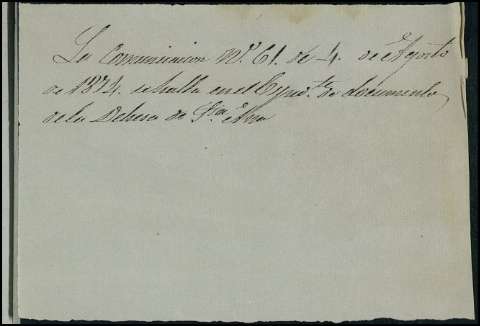 La Comunicacion Nº. 61. de 4. de Agosto
de 1874. se halla en el Expdte. de documentos
de la Dehesa de Sta. Ana